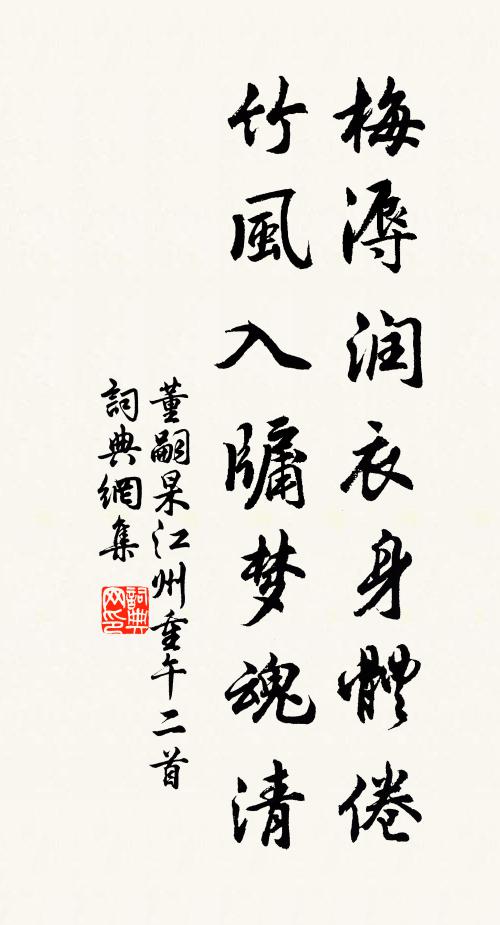 梅溽润衣身體倦
竹風入牗梦魂清
董嗣杲江州重午二首
詞典網集
詞典
网印